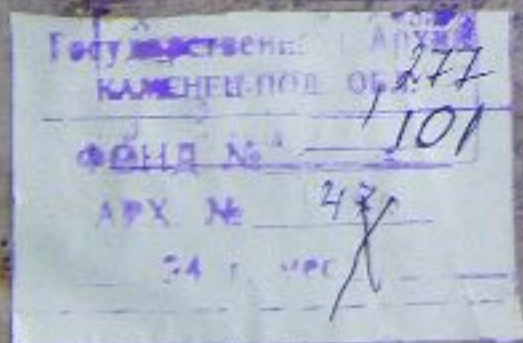 Государственн. Архив
КАМЕНЕЦ-ПОД. ОБ. 277
ФОНД № 101
АРХ. № 47